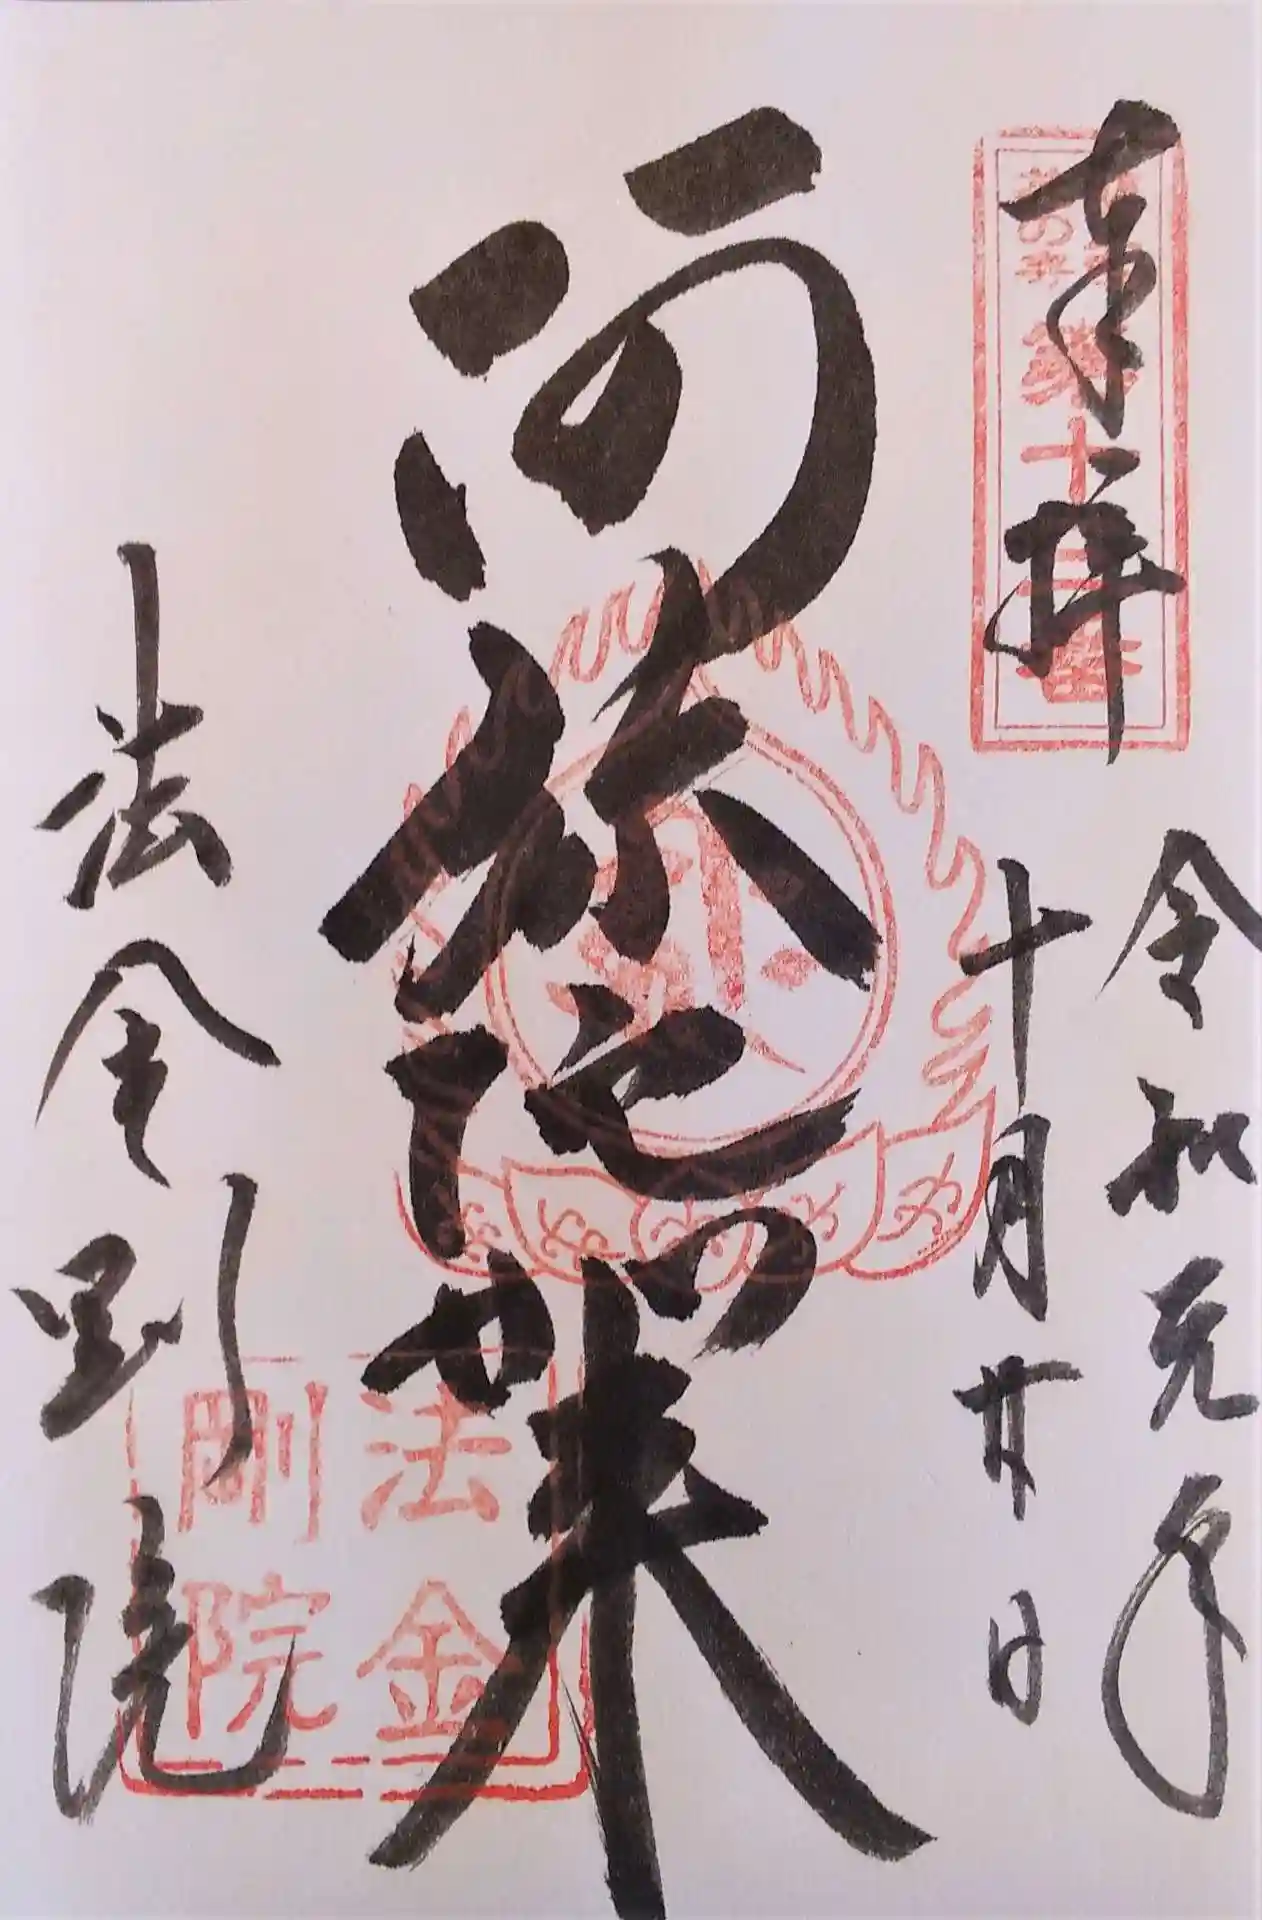 奉拝
第十三番
令和元年
十月廿日
阿弥陀如来
法金剛院
法金
剛院